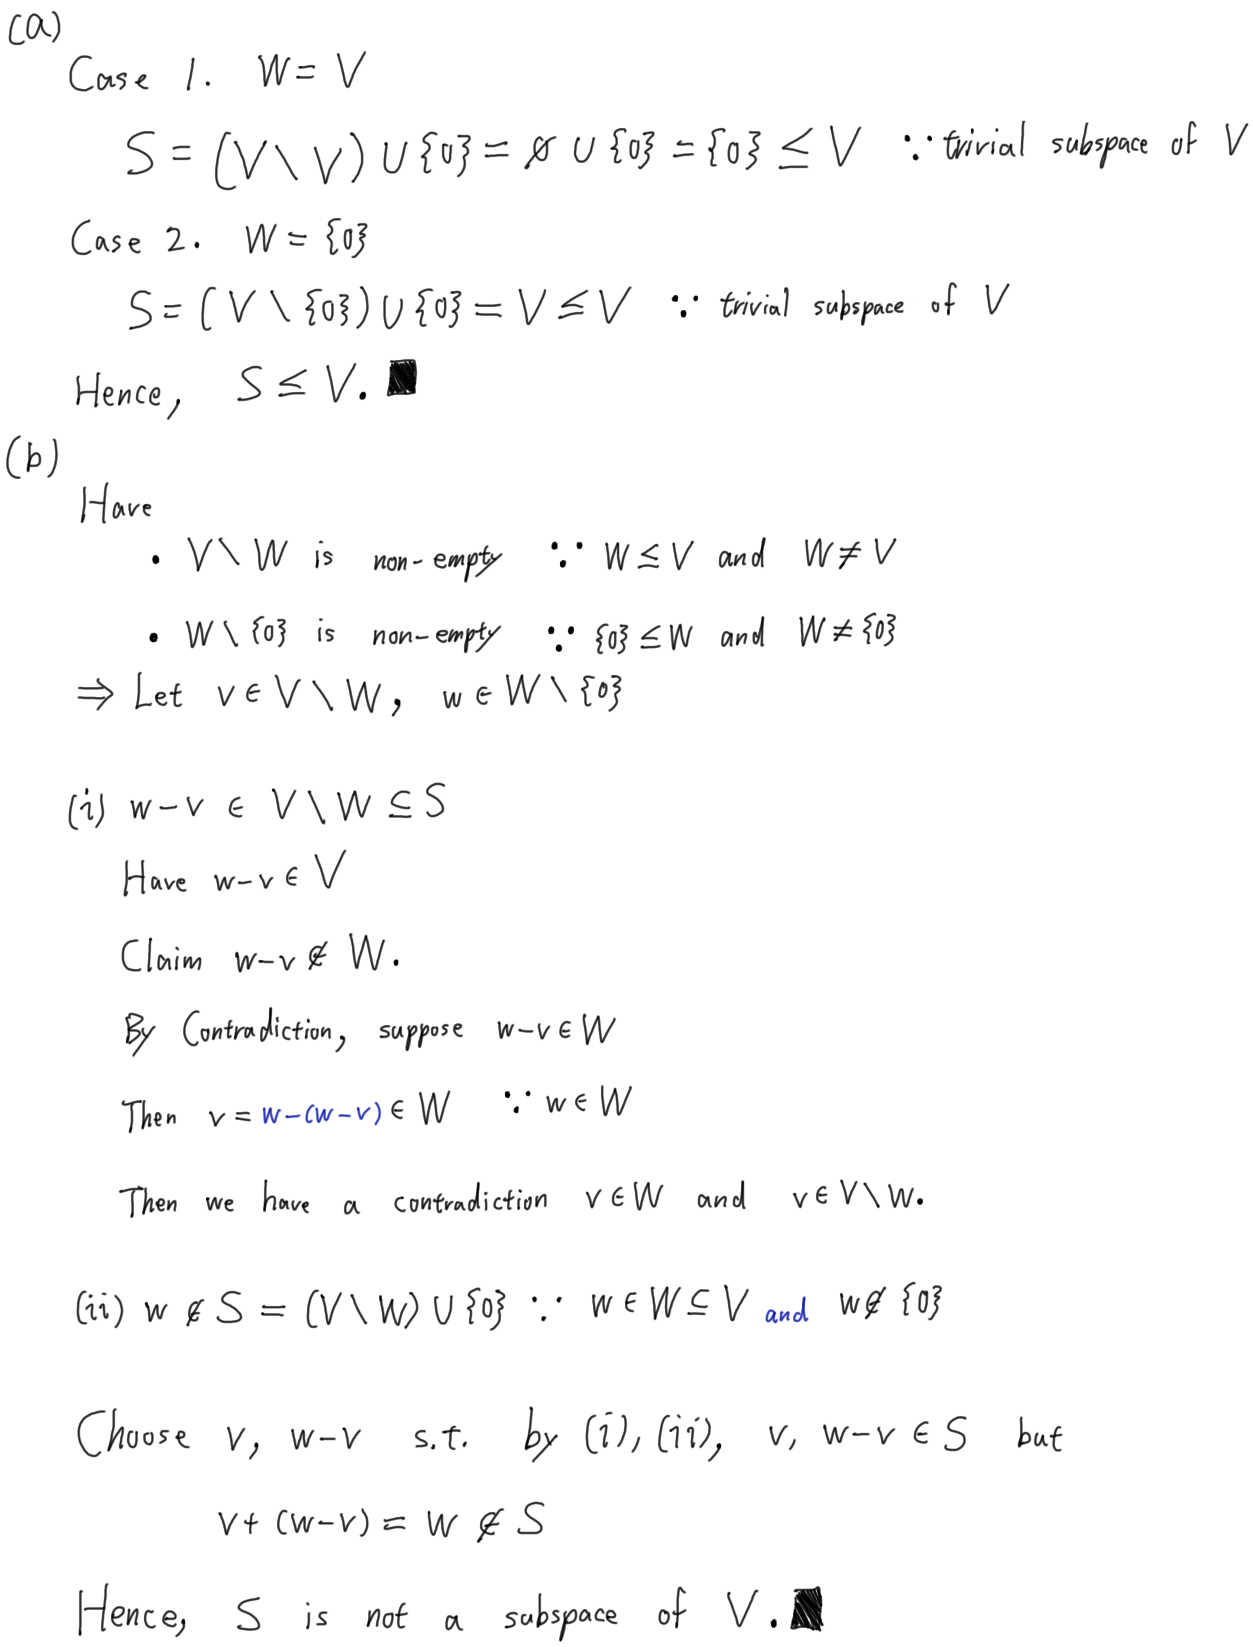 (a)
Case 1. W = V
S = (V \ V) ∪ {0} = ∅ ∪ {0} = {0} ≤ V ∵ trivial subspace of V
Case 2. W = {0}
S = (V \ {0}) ∪ {0} = V ≤ V ∵ trivial subspace of V
Hence, S ≤ V. ■
(b)
Have
• V \ W is non-empty ∵ W ≤ V and W ≠ V
• W \ {0} is non-empty ∵ {0} ≤ W and W ≠ {0}
⇒ Let v ∈ V \ W, w ∈ W \ {0}
(i) w-v ∈ V \ W ⊆ S
Have w-v ∈ V
Claim w-v ∉ W.
By Contradiction, suppose w-v ∈ W
Then v = w-(w-v) ∈ W ∵ w ∈ W
Then we have a contradiction v ∈ W and v ∈ V \ W.
(ii) w ∉ S = (V \ W) ∪ {0} ∵ w ∈ W ⊆ V and w ∉ {0}
Choose v, w-v s.t. by (i), (ii), v, w-v ∈ S but
v + (w-v) = w ∉ S
Hence, S is not a subspace of V. ■